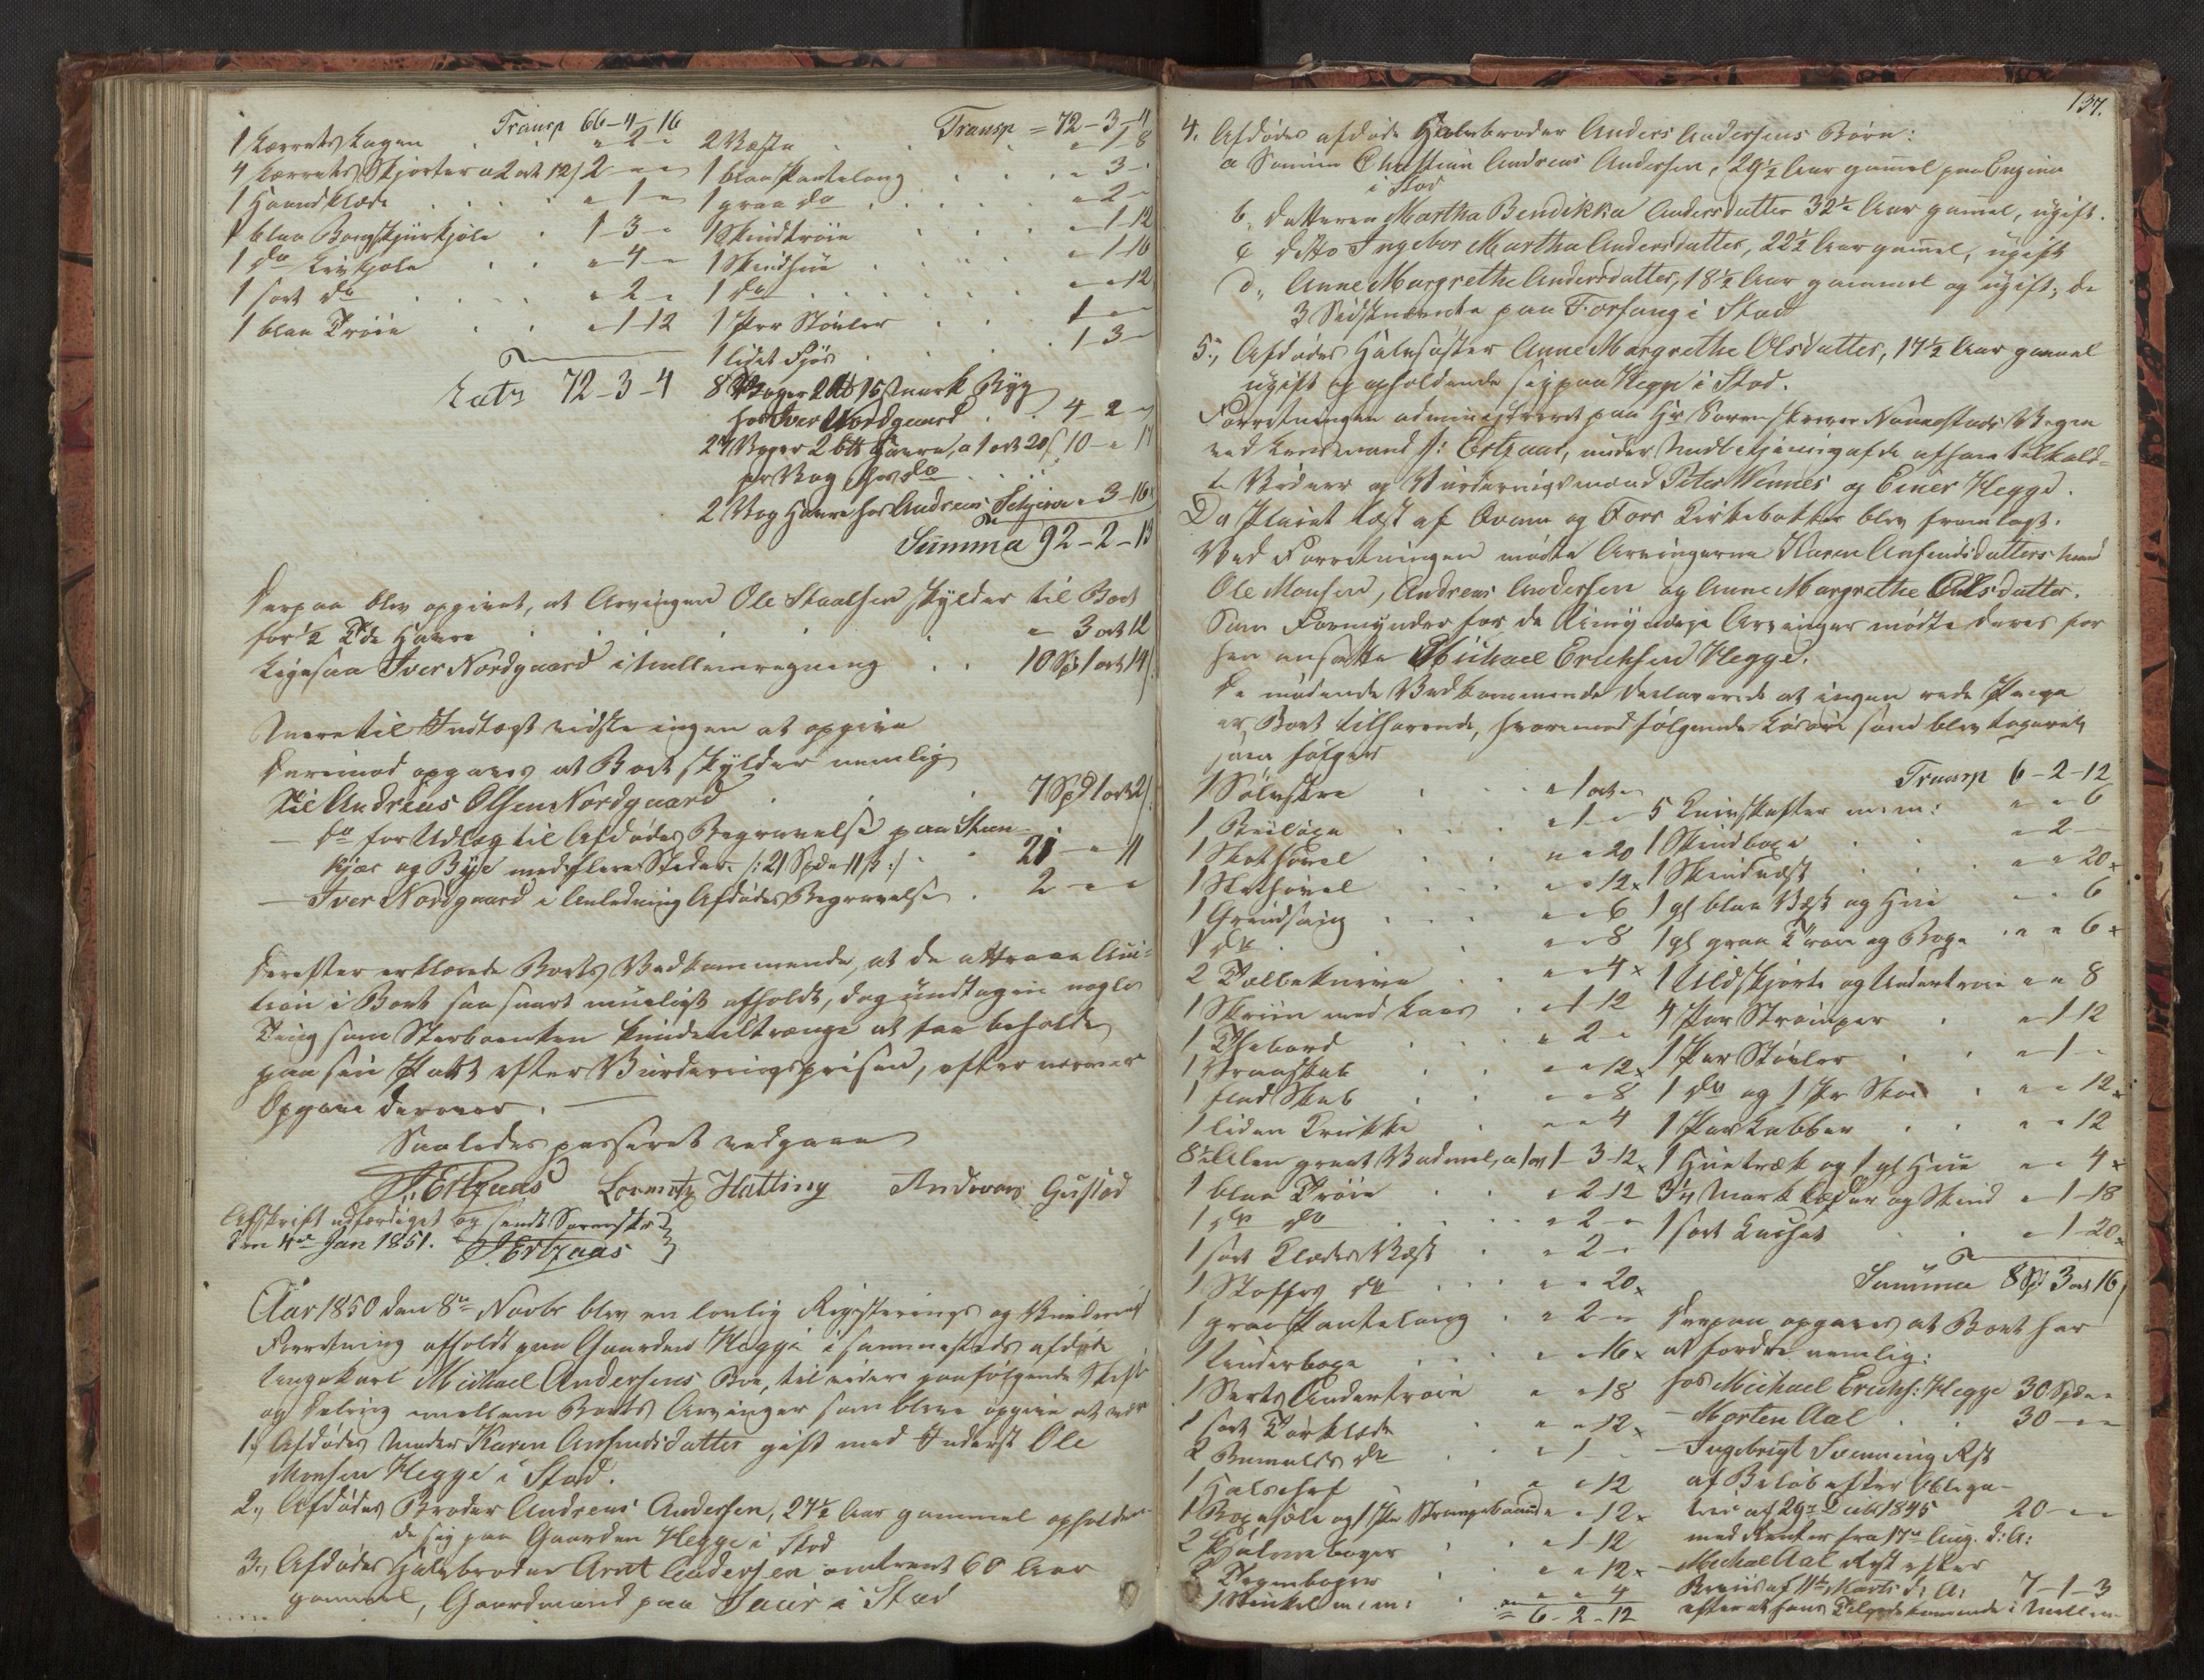 Transp 66-4-16
1 Lærrets Lagen " 2 "
4 Lærrets Skjorter a 2 ort 12/ 2 " "
1 Haandklæde " 1 "
1 blaa Kjole 1-3-"
1 do Livkjole " 4 "
1 sort do " 2 "
1 blaa Trøie " 1-12
Lats 72-3-4
Transp = 72-3-4
2 Væste " 1-8
1 blaa Pantelong " 3 -
1 graa do " 2 -
1 Skindtrøie " 1-12
1 Skindhue " 1-16
1 do " " 12
1 Par Støvler 1 " "
1 lidet 1-3-
8 Voger 2 15 mark Byg
hos Iver Nordgaard 4-2-"
24 Voger 2 Havre, a 1 ort 20/ 10 - " 17
pr Vog hos do
2 Vog Havre hos Andreas " 3-16
Summa 92-2-13
Derpaa blev opgivet, at Arvingen Ole Staalsen skylder til Boet
for 1/2 Tde Havre " 3 ort 12
Ligesaa Iver Nordgaard i Mellemregning 10 Spd 1 ort 14/
Mere til Indtægt vidste ingen at opgive
Derimod opgaves at Boet skylder nemlig
til Andreas Olsen Nordgaard 7 Spd 1 ort 2/
— do for Udlæg til Afdødes Begravelse paa Steen-
kjær og Bye med flere Steder /: 21 Spd " 11 β :/ 21 - " 11
— Iver Nordgaard i Anledning Afdødes Begravelse 2 - " "
Derefter erklærede Boets Vedkommende, at de attraae Auc-
tion i Boet saa snart mueligt afholdt, dog undtagen nogle
Ting som Sterboenken kunde eltrænge at faa beholde
paa sin Part efter Vurderingsprisen, efter nærmere
Opgave derover.
Saaledes passeret vedgaaer
P: Ertzaas Lorentz Hatting Andreas Gustad
Afskrift udfærdiget og sendt Sorenskr.
den 4de Jan 1851. P: Ertzaas
Aar 1850 den 8de Novbr blev en lovlig Registerings og Vurderings
Forretning afholdt paa Gaarden Hegge i sammesteds afdøde
Ungekarl Michael Andersens Boe, til videre paafølgende Skifte
og Deling mellem Boets Arvinger som bleve opgivne at være
1, Afdødes Moder Karen Arnfindsdatter gift med Inderst Ole
Monsen Hegge i Stod.
2., Afdødes Broder Andreas Andersen, 27 1/2 Aar gammel opholden-
de sig paa Gaarden Hegge i Stod
3., Afdødes Halvbroder Arnt Andersen omtrent 60 Aar
gammel, Gaardmand paa i Stod
137.
4. Afdødes afdøde Halvbroder Anders Andersens Børn:
a Sønnen Christian Andreas Andersen, 29 1/2 Aar gammel paa
i Stod
b, Datteren Martha Bendikka Andersdatter 32 1/2 Aar gammel, ugift.
c ditto Ingebor Martha Andersdatter, 22 1/2 Aar gammel, ugift
d., Anne Margrethe Andersdatter, 18 1/2 Aar gammel og ugift; de
3 Sidstnævnte paa Forfang i Stod
5., Afdødes Halvsøster Anne Margrethe Olsdatter, 17 1/2 Aar gammel
ugift og opholdende sig paa Hegge i Stod.
Forretningen administreret paa Hr Sorenskriver Vegne
ved Lensmand P: Ertzaas, under Medbetjening af de afham tilkald-
te Vidner og Vurderingsmænd Peter Vinnes og Einer Hegge.
Da Placat læst af Qvam og Foss Kirkebakker blev fremlagt.
Ved Forretningen mødte Arvingerne Karen Arnfindsdatters Mand
Ole Monsen, Andreas Andersen og Anne Margrethe Olsdatter.
Som Formynder for de Umyndige Arvinger mødte deres for
hen ansatte Michael Erichsen Hegge.
De mødende Vedkommende declarerede at ingen rede Penge
er Boet tilhørende, hvorimod følgende Løsøre som blev taxeret
som følger
1 Sølvskee " 1 ort "
1 " 1 "
1 " " 20
1 " " 12 x
1 Grindsaug " " 6
1 do " " 8
2 Tællekniver " " 4 x
1 Skriin med Laas " 1-12
1 Thebord " 2 "
1 Vraaskab " " 12 x
1 flad Skab " " 8
1 liden Krukke " " 4
8 1/2 Alen graat Vadmel, a 1 ort 1-3-12 x
1 blaa Trøie " 2-12
1 do do " 2 "
1 sort Klædes Vest " 2 "
1 Stoffes do " " 20 x
1 graa Pantelong " 2 "
1 Underboxe " " 16 x
1 Sarts Undertrøie " " 18
1 sort Tørklæde " " 12 x
2 Bomulds do " 1 -
1 " " 12
1 Boxesele og 1 Par Strømpebaand " " 12 x
2 Psalmebøger " 1-12
2 Bøger " " 12 x
1 m: m: " " 4
= 6-2-12
Transp 6-2-12
5 Knivskafter m: m: " " 6
1 Skindboxe " 2 -
1 Skindvest " " 20 x
1 gl blaa Vest og Hue " " 6
1 gl graa Trøie og Boxe " " 6 x
1 Uldskjorte og Undertrøie " " 8
4 Par Strømper " 1-12
1 Par Støvler " 1 -
1 do og 1 Pr Skoe " " 12 x
1 Par Labber " " 12
1 Huetræk og 1 gl Hue " " 4 x
3 1/4 Mark Læder og Skind " 1-18
1 sort " 1-20 x
Summa 8 Spd 3 ort 16/
Derpaa opgaves at Boet har
at fordre nemlig:
hos Michael Erichs: Hegge 30 Spd " "
— Morten Aal 30 - " "
— Ingebrigt Svenning Rst
af Beløb efter Obliga-
tion af 29de Decbr 1845 20 - " "
med Renter fra 17de Aug. d: A:
— Michael Aal Rest efter
Beviis af 11te Marts d: A: 7-1-3
efter at hans Tilgodekommende i Mellem-